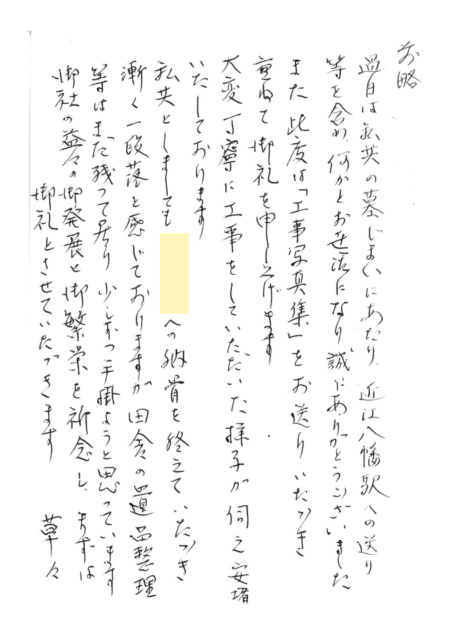 前略
過日は私共の墓じまいにあたり、近江八幡駅への送り
等を含め、何かとお世話になり誠にありがとうございました
また此度は「工事写真集」をお送りいただき
重ねて御礼を申し上げます
大変丁寧に工事をしていただいた様子が伺え安堵
いたしております
私共としましても への納骨を終えていただき
漸く一段落と感じておりますが田舎の遺品整理
等はまだ残って居り少しずつ手掛ようと思っています
御社の益々の御発展と御繁栄を祈念し、まずは
御礼とさせていただきます
草々